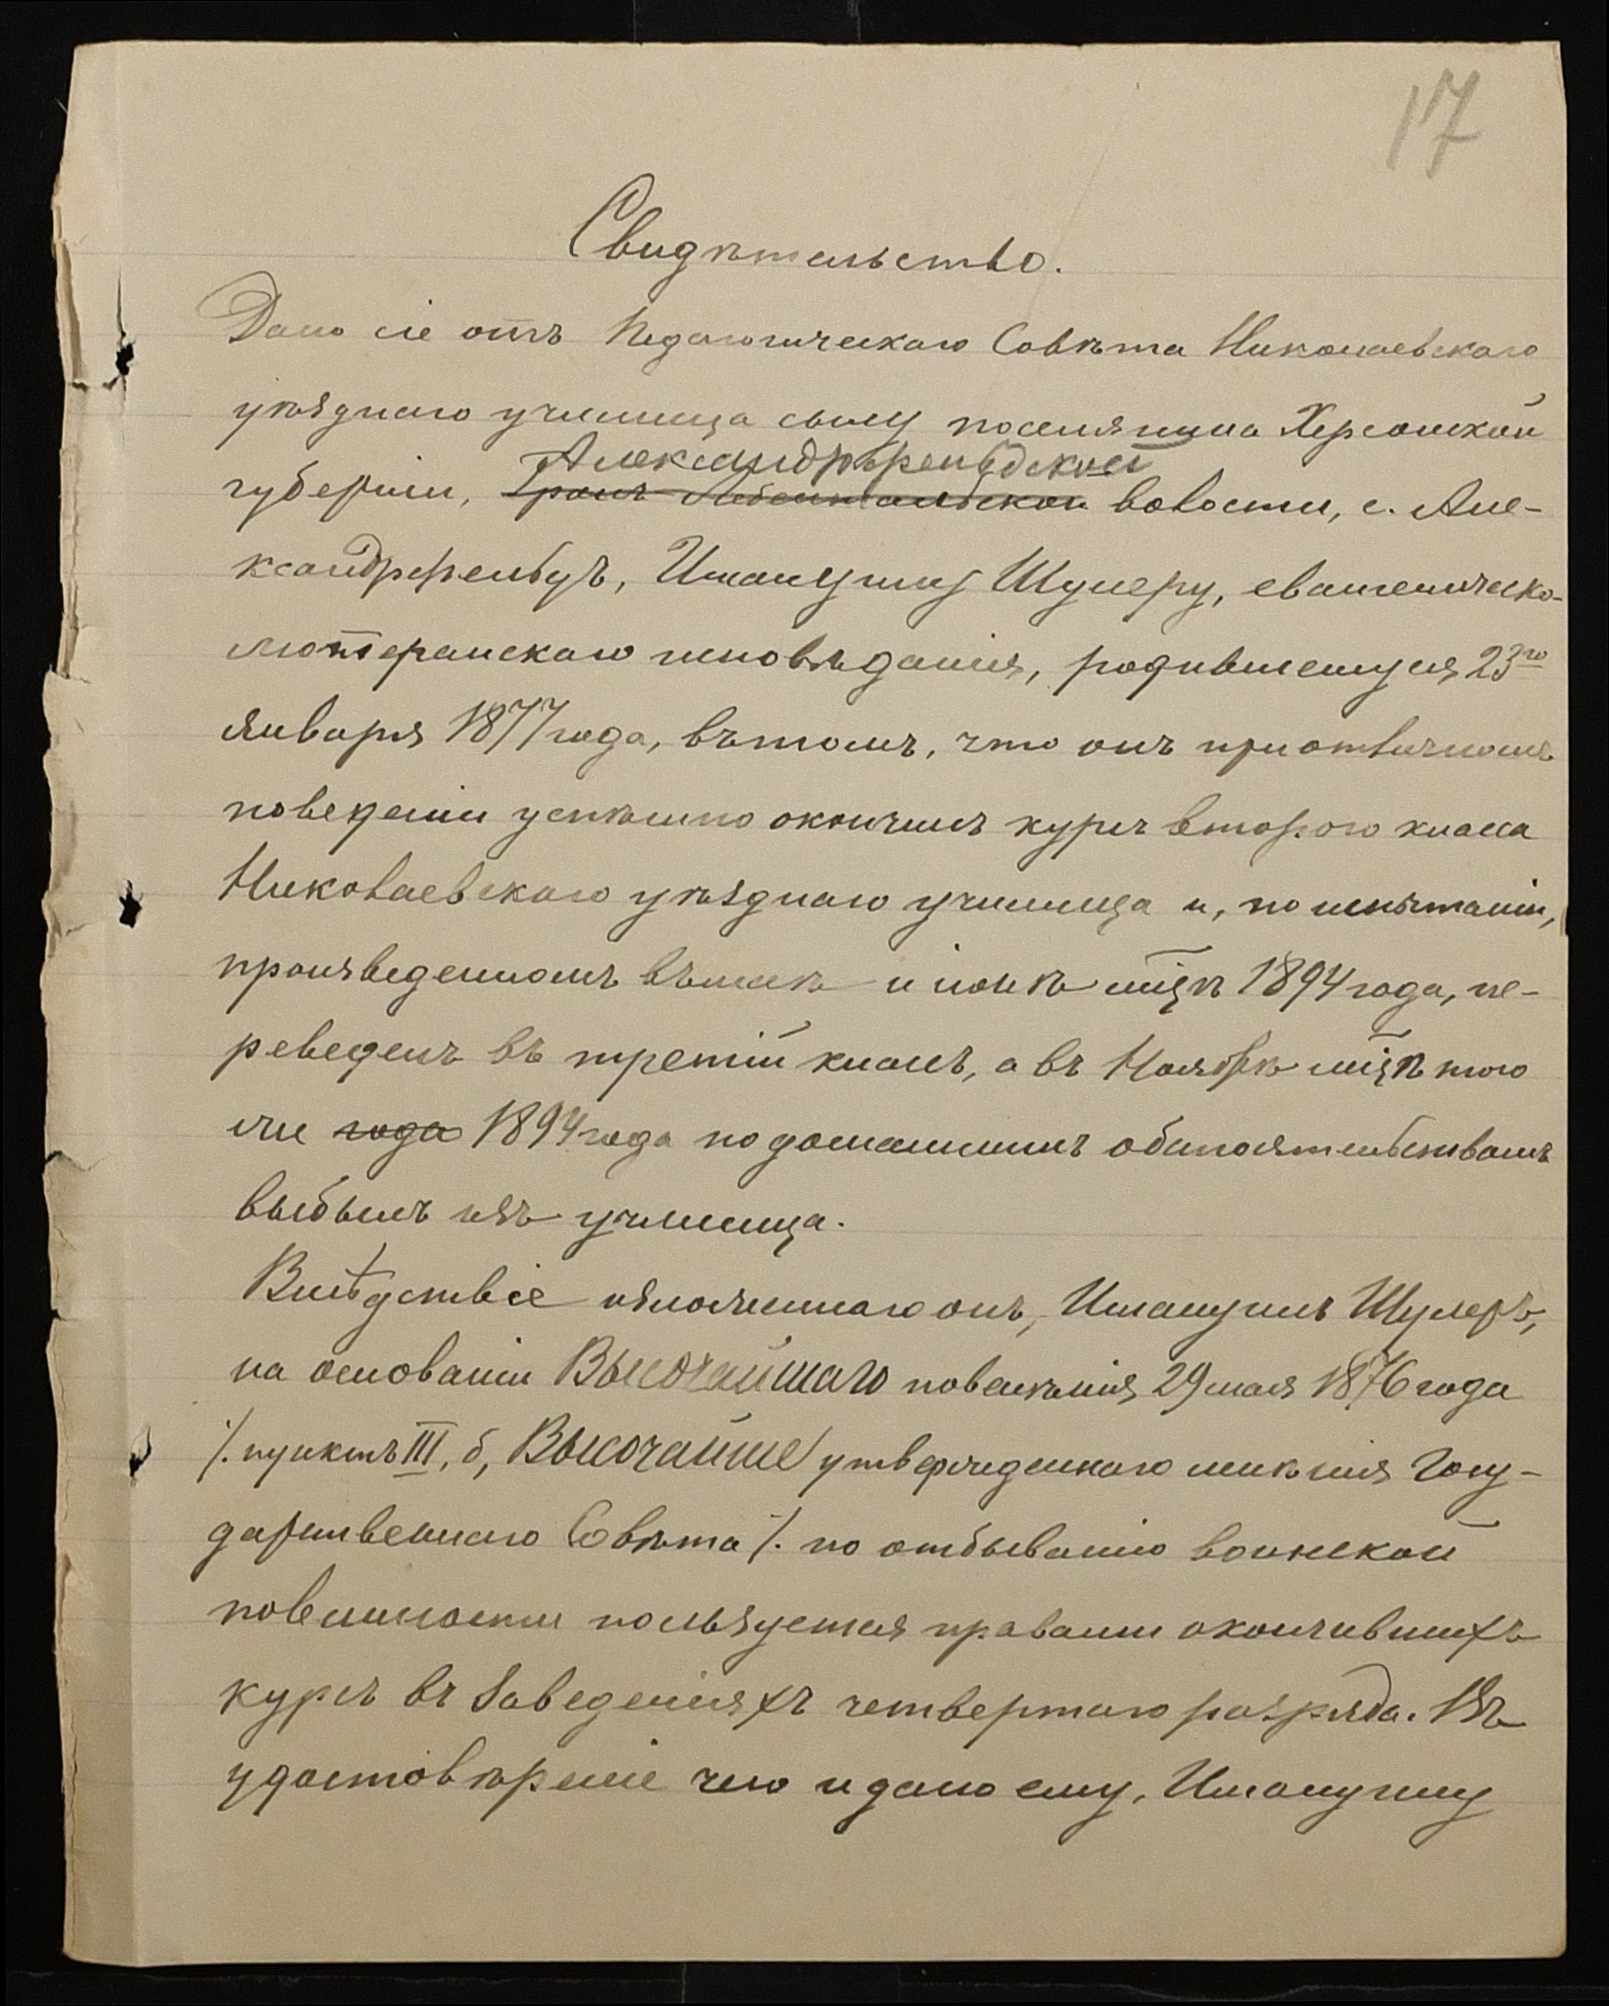 17
Свидѣтельство.
Дано сіе отъ Педагогическаго Совѣта Николаевскаго
уѣзднаго училища сыну поселянина Херсонской
Александрфельдской
губерніи, волости, с. Але-
ксандрфельдъ, Имануилу Шулеру, евангелическо-
лютеранскаго исповѣданія, родившемуся 23го
Января 1877 года, въ томъ, что онъ при отличномъ
поведеніи успѣшно окончилъ курсъ второго класса
Николаевскаго уѣзднаго училища и, по испытаніи,
произведенномъ въ маѣ и іюнѣ мцѣ 1894 года, пе-
реведенъ въ третій классъ, а въ Ноябрѣ мцѣ того
же года 1894 года по домашнимъ обстоятельствамъ
выбылъ изъ училища.
Вслѣдствіе изложеннаго онъ, Имануилъ Шулеръ,
на основаніи Высочайшаго повелѣнія 29 мая 1876 года
/. пунктъ III, б, Высочайше утвержденнаго мнѣнія Госу-
дарственнаго Совѣта /. по отбыванію воинской
повинности пользуется правами окончившихъ
курсъ въ заведеніяхъ четвертаго разряда. Въ
удостовѣреніе чего и дано ему, Имануилу